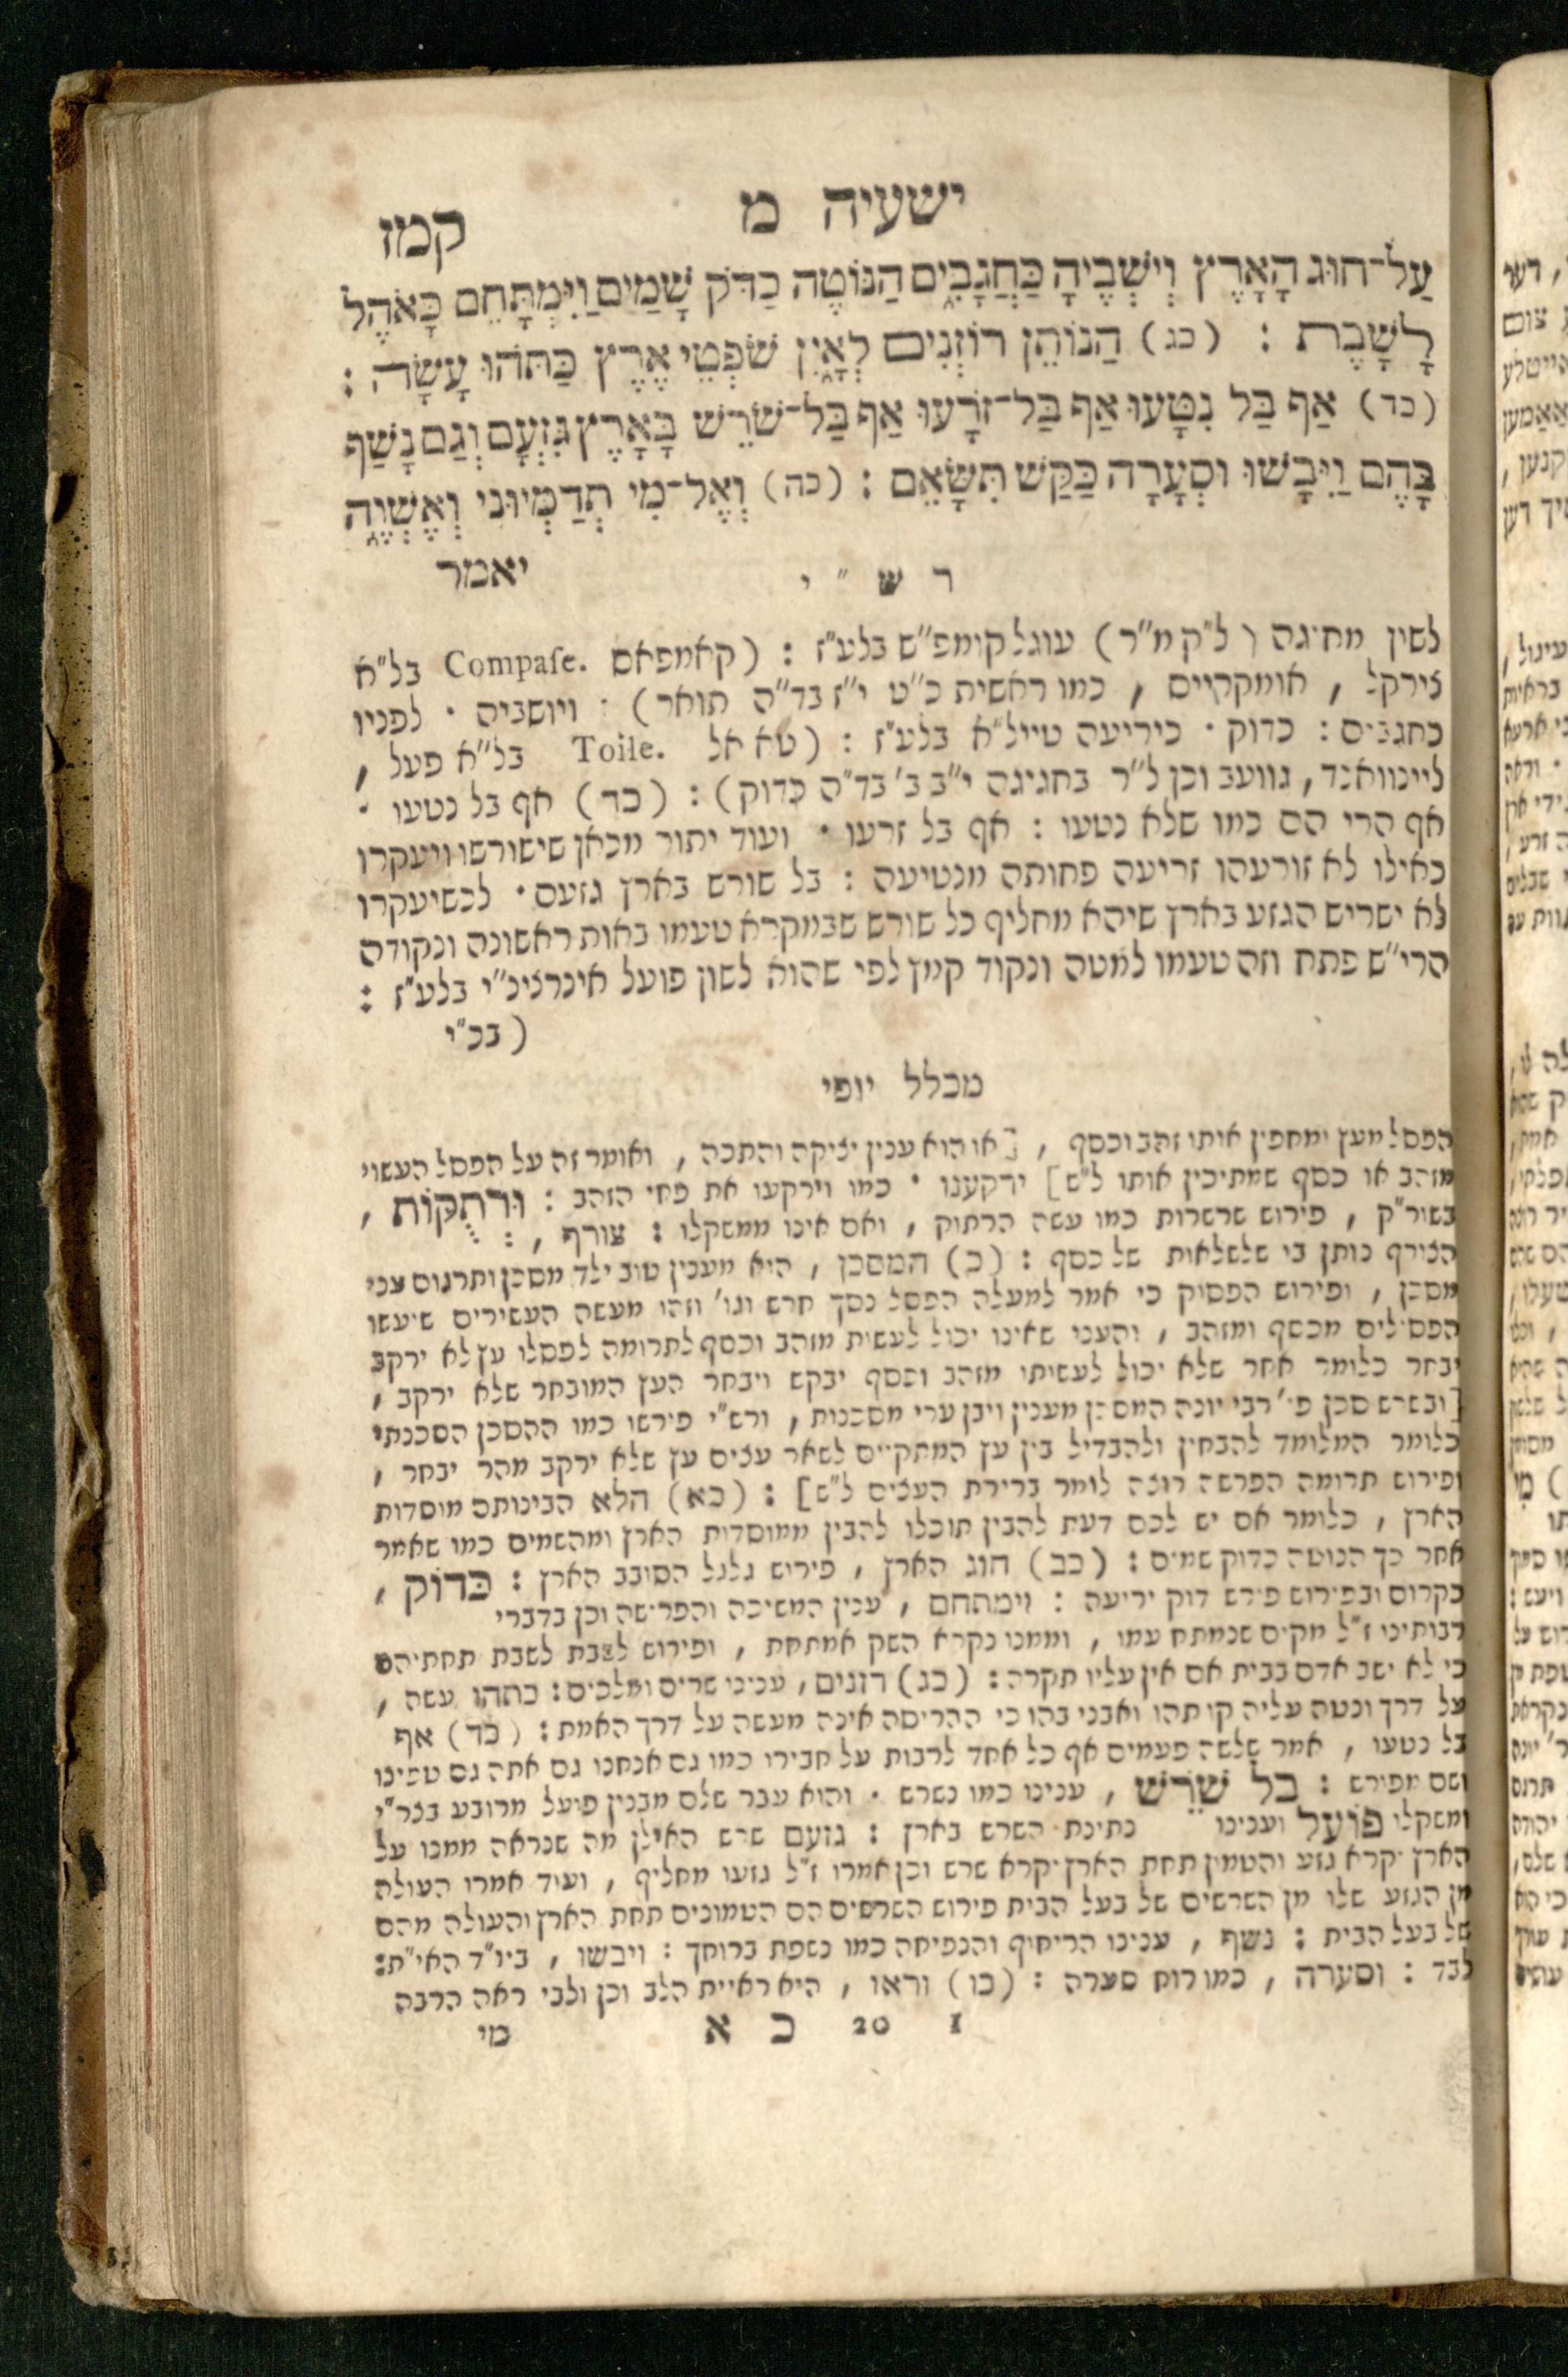 ישעיה מ
קמז
עַל־חוּג הָאָרֶץ וְיֹשְׁבֶיהָ כַּחֲגָבִים הַנּוֹטֶה כַדֹּק שָׁמַיִם וַיִּמְתָּחֵם כָּאֹהֶל
לָשָׁבֶת : (כג) הַנּוֹתֵן רוֹזְנִים לְאָיִן שֹׁפְטֵי אֶרֶץ כַּתֹּהוּ עָשָׂה :
(כד) אַף בַּל נִטָּעוּ אַף בַּל־זֹרָעוּ אַף בַּל־שֹׁרֵשׁ בָּאָרֶץ גִּזְעָם וְגַם נָשַׁף
בָּהֶם וַיִּבָשׁוּ וּסְעָרָה כַּקַּשׁ תִּשָּׂאֵם : (כה) וְאֶל־מִי תְדַמְּיוּנִי וְאֶשְׁוֶה
יאמר
ר ש " י
לשון מחוגה (ל"ק מ"ר) עוגל קומפ"ש בלע"ז : (קאמפאס Compase. בל"א
צירקל , אומקרייס , כמו ראשית כ"ט י"ז בד"ה תואר) : ויושביה . לפניו
כחגבים : כדוק . כיריעה טייל"א בלע"ז : (טאאל Toile. בל"א פעל ,
ליינוואנד , גוועב וכן ל"ר בחגיגה י"ב ב' בד"ה כדוק) : (כד) אף בל נטעו .
אף הרי הם כמו שלא נטעו : אף בל זרעו . ועוד יתור מכאן שישורשו ויעקרו
כאילו לא זורעהו זריעה פחותה מנטיעה : בל שורש בארץ גזעם . לכשיעקרו
לא ישריש הגזע בארץ שיהא מחליף כל שורש שבמקרא טעמו באות ראשונה ונקודה
הרי"ש פתח וזה טעמו למטה ונקוד קמץ לפי שהוא לשון פועל אינרצינ"י בלע"ז :
(בכ"י
מכלל יופי
הפסל מעץ ומחפין אותו זהב וכסף , [או הוא ענין יציקה והתכה , ואומר זה על הפסל העשוי
מזהב או כסף שמתיכין אותו ל"ש] ירקענו . כמו וירקעו את פחי הזהב : וּרְתֻקוֹת ,
בשור"ק , פירוש שרשרות כמו עשה הרתוק , ואם אינו ממשקלו : צורף ,
הצורף נותן בו שלשלאות של כסף : (כ) המסכן , הוא מענין טוב ילד מסכן ותרגום עני
מסכן , ופירוש הפסוק כי אמר למעלה הפסל נסך חרש וגו' וזהו מעשה העשירים שיעשו
הפסילים מכסף ומזהב , והעני שאינו יכול לעשות מזהב וכסף לתרומה לפסלו עץ לא ירקב
יבחר כלומר אחר שלא יכול לעשותו מזהב וכסף יבקש ויבחר העץ המובחר שלא ירקב ,
[ובשרש סכן פי' רבי יונה המסכן מענין ויבן ערי מסכנות , ורש"י פירשו כמו ההסכן הסכנתי
כלומר המלומד להבחין ולהבדיל בין עץ המתקיים לשאר עצים עץ שלא ירקב מהר יבחר ,
ופירוש תרומה הפרשה רוצה לומר ברירת העצים ל"ש] : (כא) הלא הבינותם מוסדות
הארץ , כלומר אם יש לכם דעת להבין תוכלו להבין ממוסדות הארץ ומהשמים כמו שאמר
אחר כך הנוטה כדוק שמים : (כב) חוג הארץ , פירוש גלגל הסובב הארץ : כַּדוֹק ,
בקרום ובפירוש פירש דוק יריעה : וימתחם , ענין המשיכה והפרישה וכן בדברי
רבותינו ז"ל מקום שנמתח עמו , וממנו נקרא השק אמתחת , ופירוש לשבת לשבת תחתיהם
כי לא ישב אדם בבית אם אין עליו תקרה : (כג) רזנים , ענינו שרים ומלכים : כתהו עשה ,
על דרך ונטה עליה קו תהו ואבני בהו כי ההריסה אינה מעשה על דרך האמת : (כד) אף
בל נטעו , אמר שלשה פעמים אף כל אחד לרבות על חבירו כמו גם אנחנו גם אתה גם טפינו
ושם מפורש : בל שֹׁרֵשׁ , ענינו כמו נשרש . והוא עבר שלם מבנין פועל מרובע בצר"י
ומשקלו פּוֹעֵל וענינו נתינת השרש בארץ : גזעם שרש האילן מה שנראה ממנו על
הארץ יקרא גזע והטמון תחת הארץ יקרא שרש וכן אמרו ז"ל גזעו מחליף , ועוד אמרו העולה
מן הגזע שלו מן השרשים של בעל הבית פירוש השרשים הם הטמונים תחת הארץ והעולה מהם
של בעל הבית : נשף , ענינו הריחוף והנפיחה כמו נשפת ברוחך : ויבשו , ביו"ד האי"תן
לבד : וסערה , כמו רוח סערה : (כו) וראו , היא ראיית הלב וכן ולבי ראה הרבה
1 20 כ א
מי